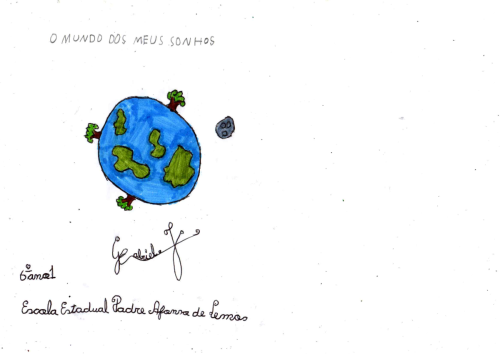 O MUNDO DOS MEUS SONHOS
6º ano 1
Escola Estadual Padre Afonso de Lemos